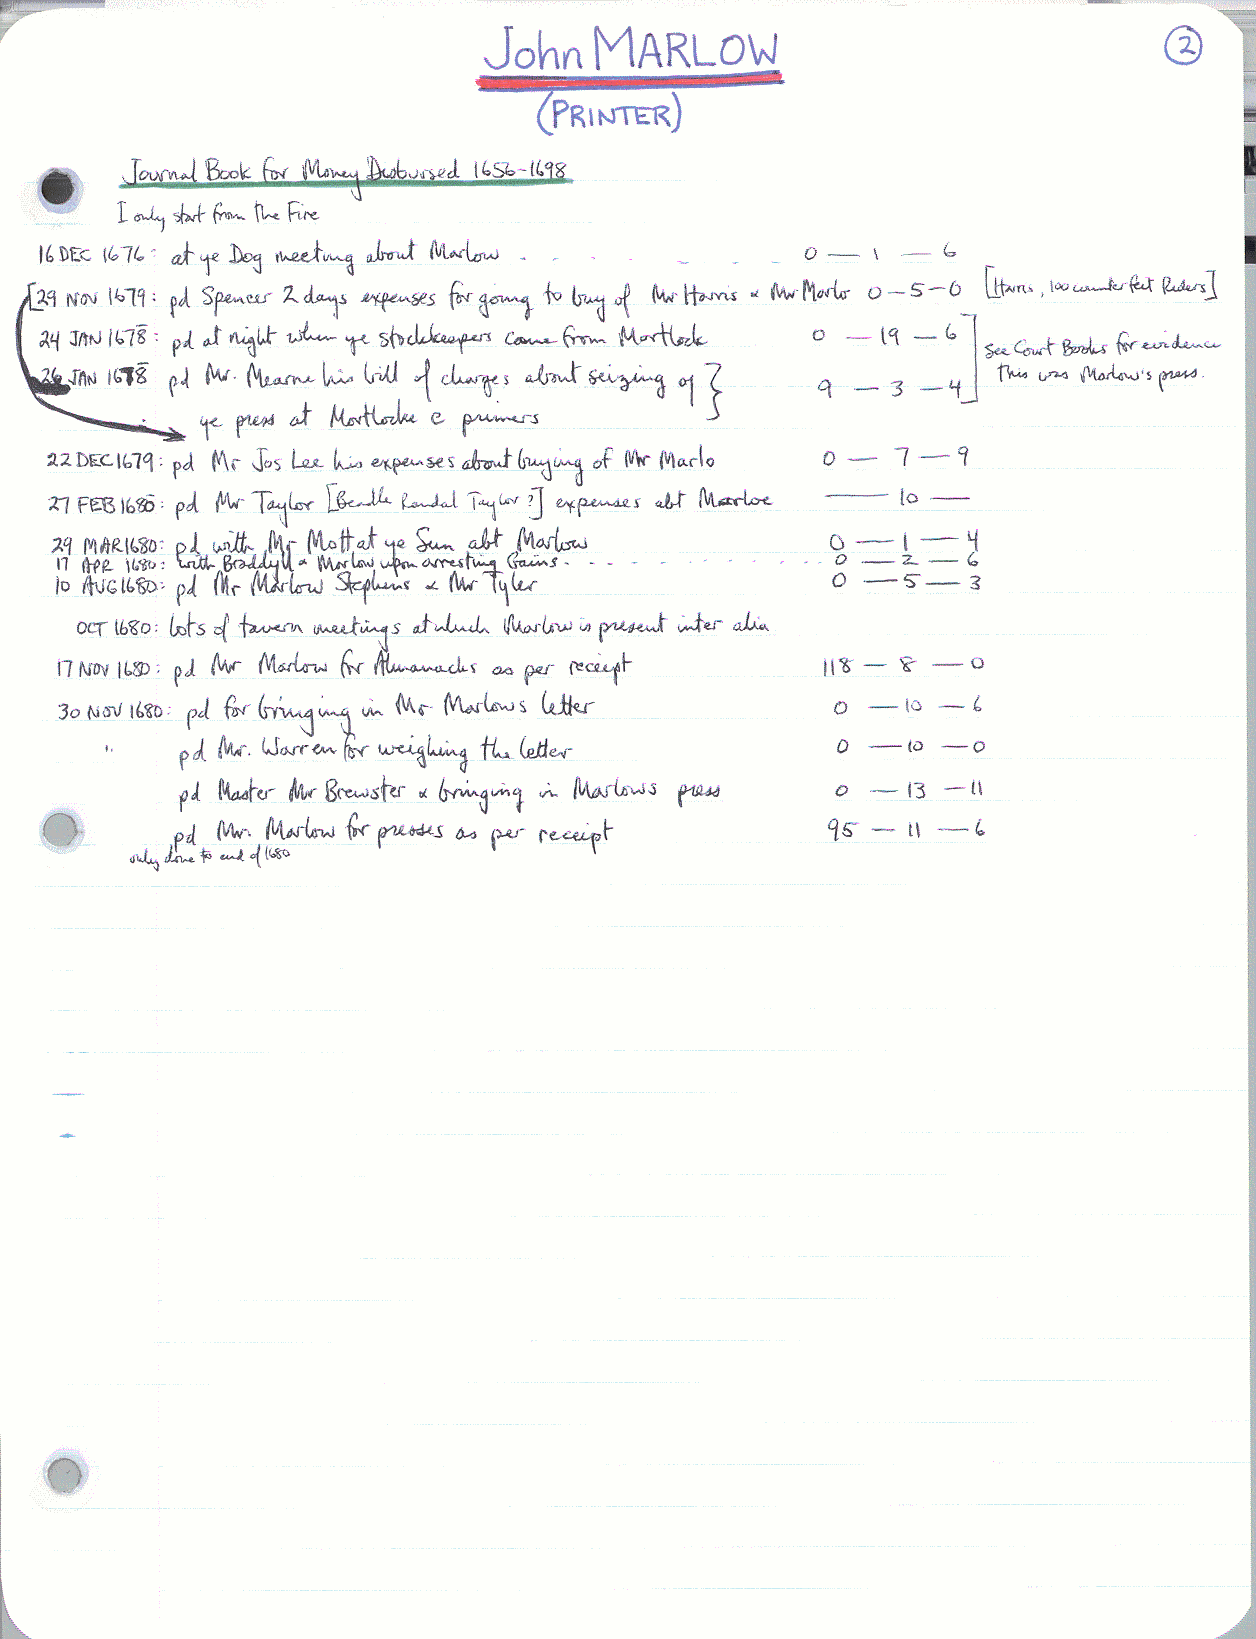 John MARLOW
2
(PRINTER)
Journal Book for Money Disbursed 1656-1698
I only start from the Fire
16 DEC 1676: at ye Dog meeting about Marlow . . . . . . 0 — 1 — 6
[29 NOV 1679: pd Spencer 2 days expenses for going to buy of Mr Harris & Mr Marlo 0 – 5 – 0 [Harris, 100 counterfeit Primers]
24 JAN 1678: pd at night when ye stockkeepers came from Mortlock 0 — 19 — 6
see Court Books for evidence
this was Marlow's press.
26 JAN 1678 pd Mr. Mearne his bill of charges about seizing of } 9 — 3 — 4
ye press at Mortlocke & primers
22 DEC 1679: pd Mr Jos Lee his expenses about buying of Mr Marlo 0 — 7 — 9
27 FEB 1680: pd Mr Taylor [Beadle Randal Taylor?] expenses abt Marloe —— 10 —
29 MAR 1680: pd with Mr Mott at ye Sun abt Marlow 0 — 1 — 4
17 APR 1680: with Braddyll & Marlow upon arresting Gains . . . . . . . . 0 — 2 — 6
10 AUG 1680: pd Mr Marlow Stephens & Mr Tyler 0 — 5 — 3
OCT 1680: lots of tavern meetings at which Marlow is present inter alia
17 NOV 1680: pd Mr Marlow for Almanacks as per receipt 118 — 8 — 0
30 NOV 1680: pd for bringing in Mr Marlows letter 0 — 10 — 6
" pd Mr. Warren for weighing the letter 0 — 10 — 0
pd Master Mr Brewster & bringing in Marlows press 0 — 13 — 11
pd Mr. Marlow for presses as per receipt 95 — 11 — 6
only done to end of 1680